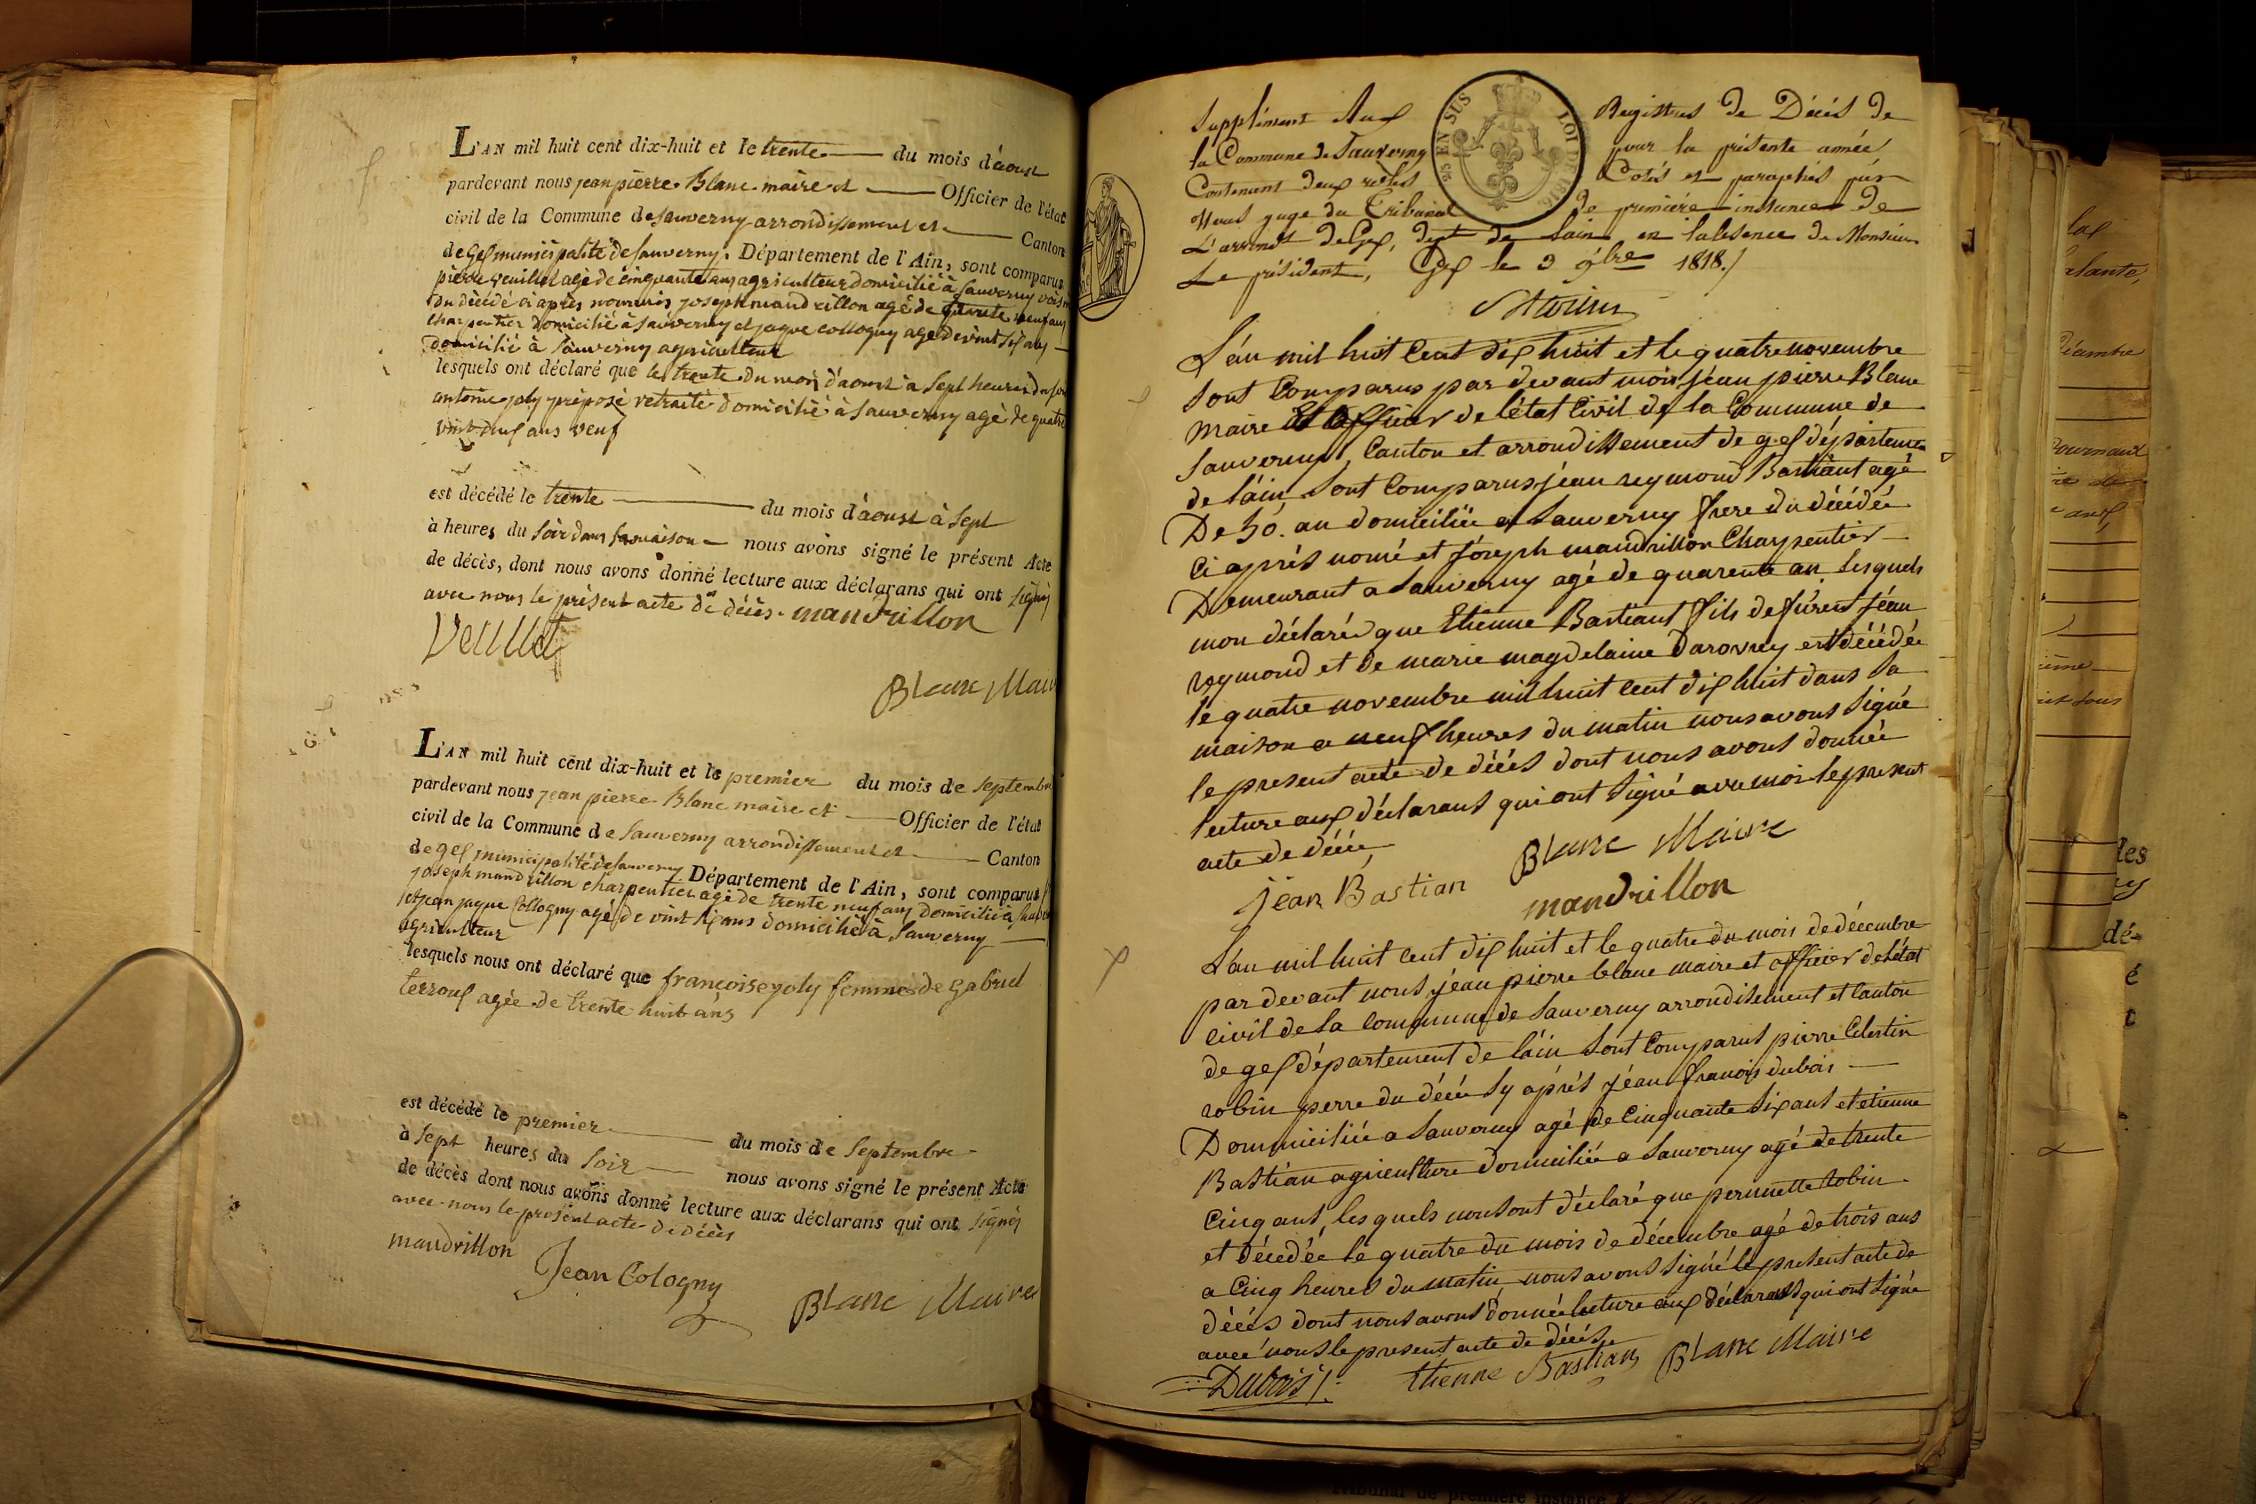 L'AN mil huit cent dix-huit et le trente du mois d'aoust
pardevant nous jean pierre Blanc maire et Officier de l'état
civil de la Commune de sauverny arrondissement et Canton
de Gex municipalité de sauverny. Département de l'Ain, sont comparus
pierre veuillet agé de cinquante ans agriculteur domicilié à Sauverny voisin
du décédé ci après nommé joseph mandrillon agé de trente neuf ans
charpentier domicilié à Sauverny et jaque collogny agé de vint six ans
domicilié à Sauverny agriculteur
lesquels ont déclaré que le trente du mois d'aoust à sept heures du soir
antoine joly préposé retraité domicilié à Sauverny agé de quatre
vint deux ans veuf
est décédé le trente du mois d'aoust à sept
à heures du soir dans sa maison nous avons signé le présent Acte
de décès, dont nous avons donné lecture aux déclarans qui ont signés
avec nous le présent acte de décès. mandrillon
Veuillet
Blanc Maire
L'AN mil huit cent dix-huit et le premier du mois de septembre
pardevant nous jean pierre Blanc maire et Officier de l'état
civil de la Commune de sauverny arrondissement et Canton
de gex municipalité de sauverny Département de l'Ain, sont comparus
joseph mandrillon charpentier agé de trente neuf ans domicilié à
et jean jaque Collogny agé de vint six ans domicilié à Sauverny
agriculteur
lesquels nous ont déclaré que françoise joly femme de Gabriel
terroux agée de trente huit ans
est décédé le premier du mois de septembre
à sept heures du soir nous avons signé le présent Acte
de décès dont nous avons donné lecture aux déclarans qui ont signés
avec nous le présent acte de décès
mandrillon
Jean Cologny
Blanc Maire
EN SUS
LOI DE 1816
Supplément Aux Registres de Décès de
la Commune de Sauverny pour la présente année
Contenant deux Cotés et paraphés par
Nous juge du Tribunal de première instance de
L'arrondt de Gex, dept de Lain en labsence de Monsieur
Le président, Gex le 3 9bre 1818./
L'an mil huit Cent dix huit et le quatre novembre
sont Comparus par devant moi jean pierre Blanc
maire et officier de l'état Civil de la Commune de
Sauverny, Canton et arrondissement de gex départemen
de lain sont Comparus jean reymond Bastiant agé
De 50. an domiciliée a Sauverny frere du décédée
Ci après nomé et joseph mandrillon Charpentier
Demeurant a Sauverny agé de quarente an lesquels
mon déclaré que Etienne Bastiant fils de jean
reymond et de marie magdelaine Darovrey est décédée
le quatre novembre mil huit Cent dix huit dans sa
maison a neuf heures du matin nous avons signé
le present acte de décés dont nous avons donnée
lecture aux déclarans qui ont signé avec moi le present
acte de décée
jean Bastian
Blanc Maire
mandrillon
L'an mil huit Cent dix huit et le quatre du mois de décembre
par devant nous jéan pierre blanc maire et officier de l'état
Civil de la Commune de Sauverny arrondisement et Canton
de gex département de lain sont Comparus pierre Celestin
robin perre du décée sy après jéan francois dubois
Dommiciliée a Sauverny agé de Cinquante six ans et etienne
Bastian agriculture domiciliée a Sauverny agé de trente
Cinq ans, lesquels nous ont déclaré que pernette robin
et décedée le quatre du mois de décembre agé de trois ans
a Cinq heures du matin nous avons signé le present acte de
décés dont nous avons donnée lecture aux déclarans qui ont signé
avec nous le present acte de décés
Dubois
Etienne Bastian
Blanc Maire